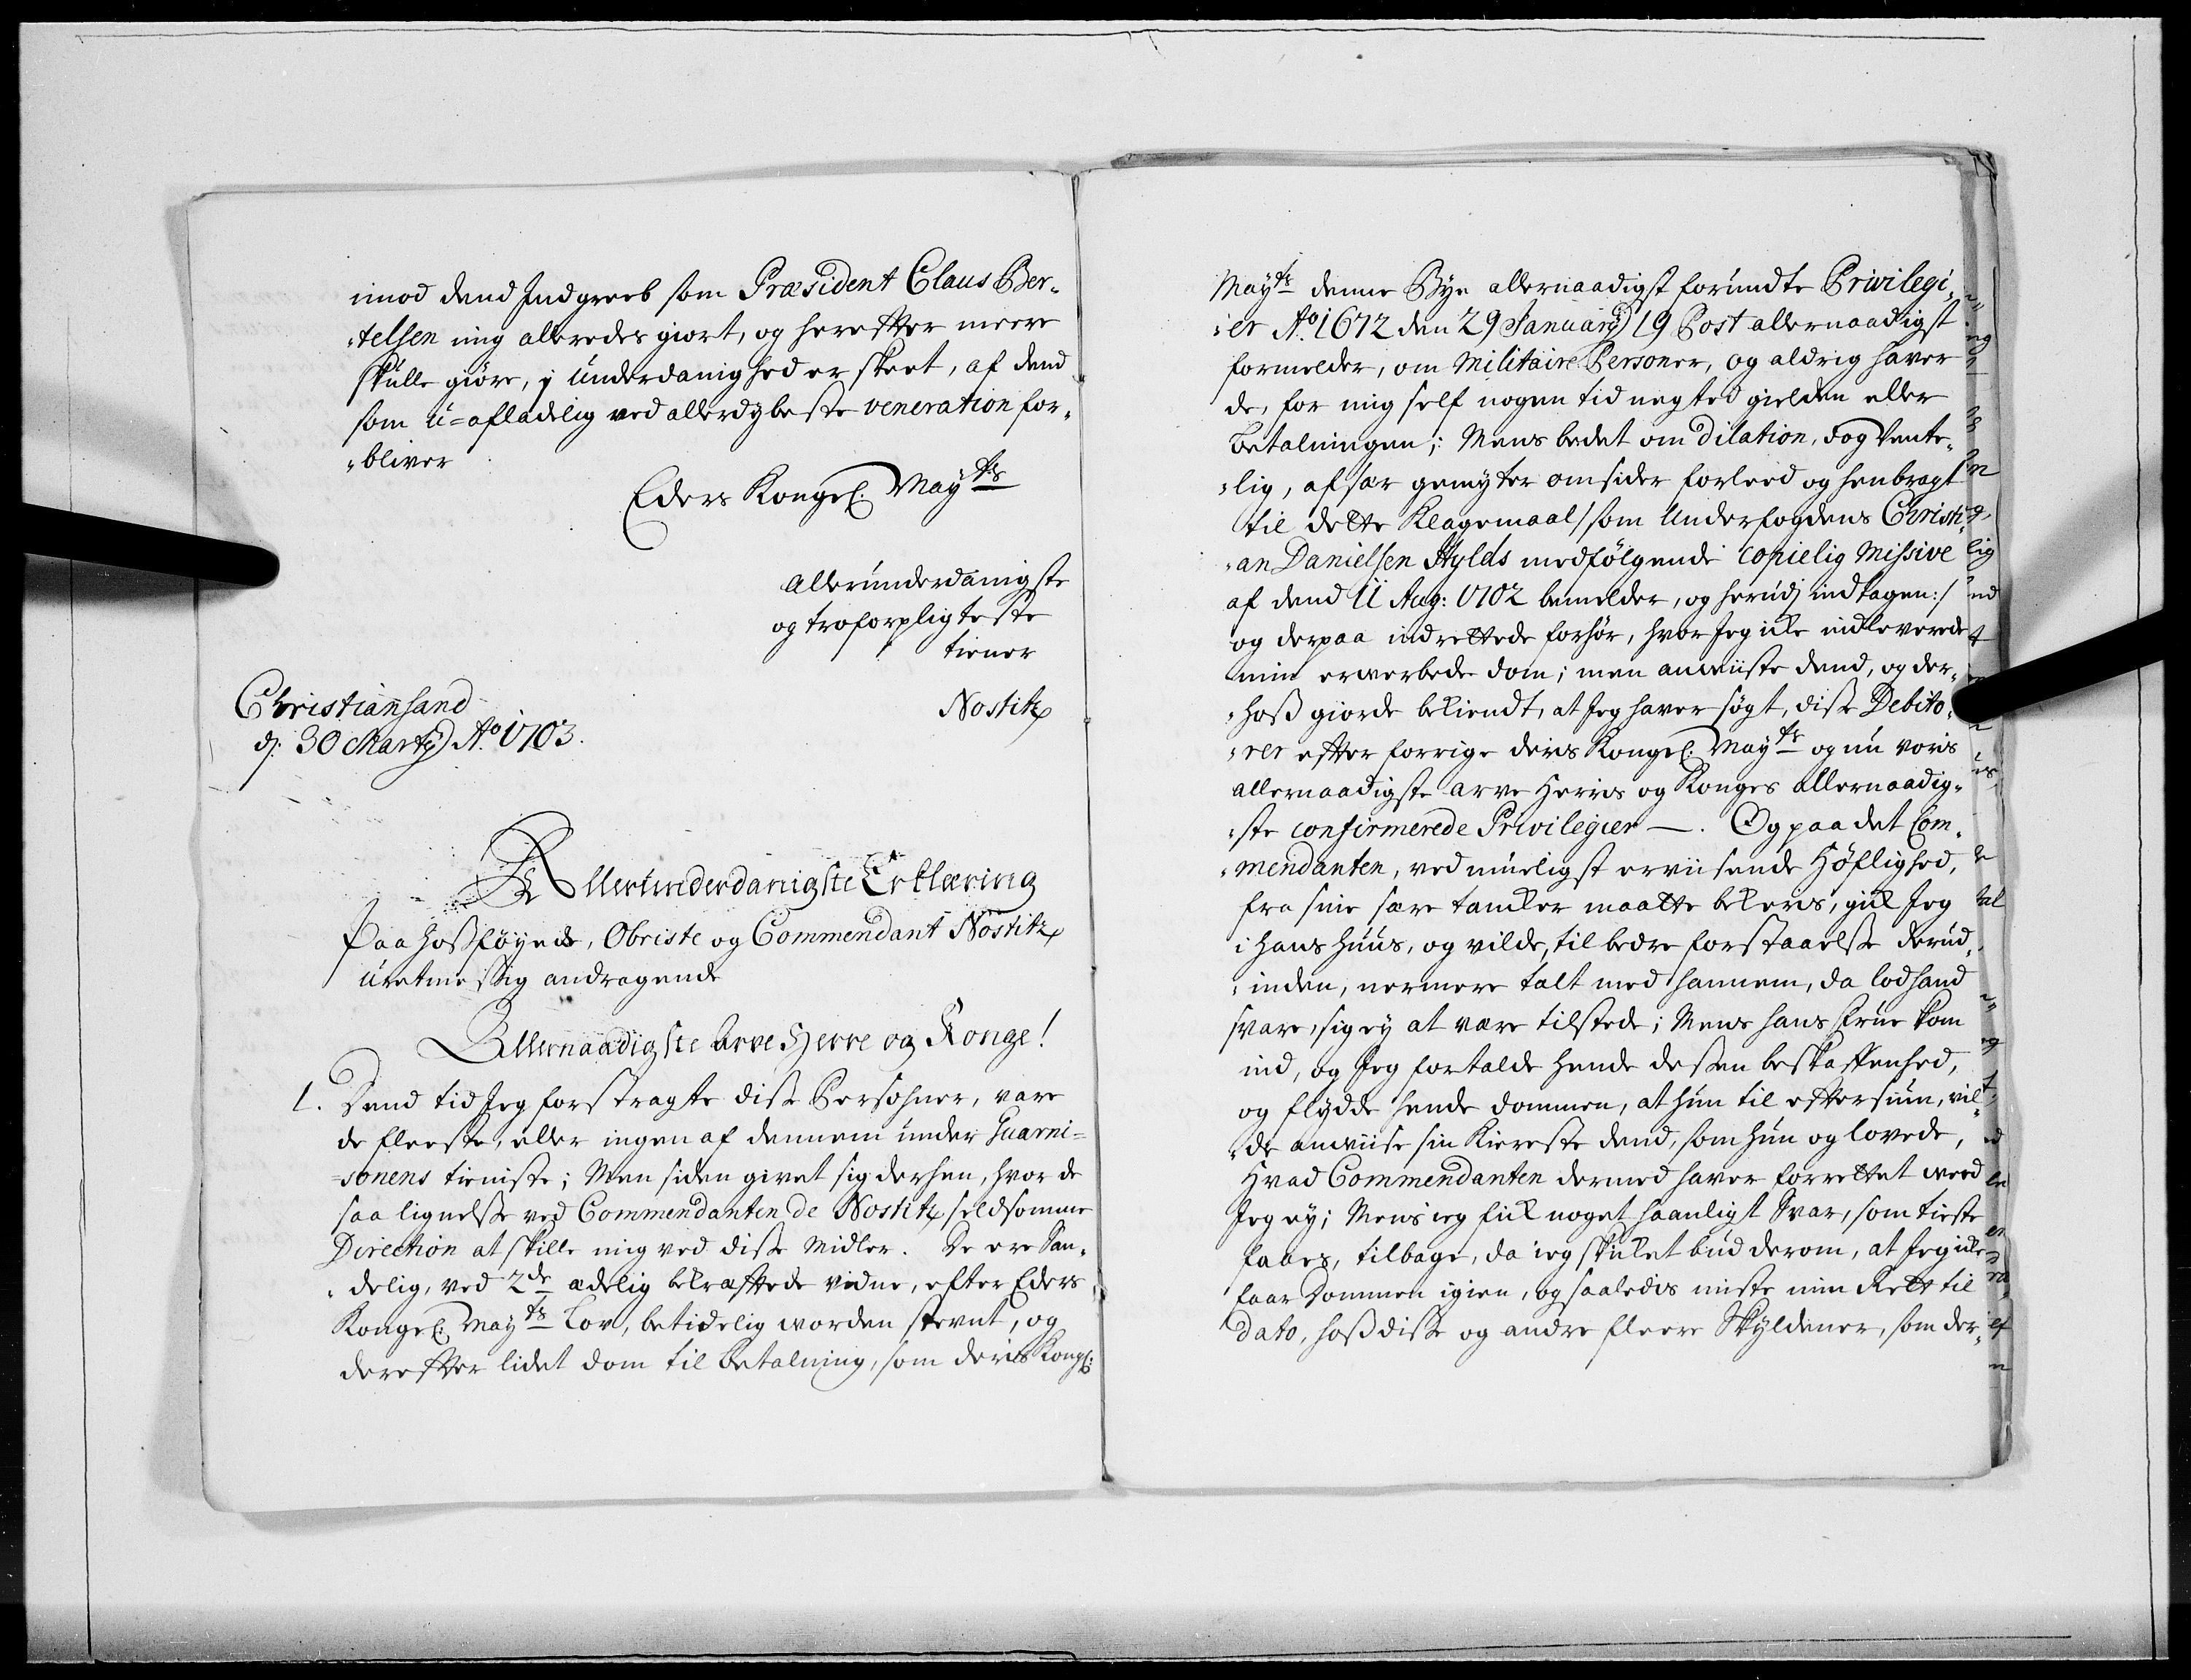 imod dend Indgreeb som Præsident Claus Ber„
„telsen mig allerede giort, og herefter meere
skulle giøre, j underdanighed er skeet, af dend
som u=afladelig ved allerdybeste veneration for„
„bliver
Eders Kongel: Mayts
allerunderdanigste
og troforpligteste
tiener
Nostitz
Christiansand
dj: 30 Martij Ao 1703.
Allerunderdanigste Erklæring
Paa hoßføyede, Obriste og Commendant Nostitz
uretmessig andragende
Allernaadigste Arve Herre og Konge!
1. Dend tid Jeg forstragte disse Persohner, vare
de fleeste, eller ingen af dennem under Guarni=
=sonens tieniste; Men siden givet sig derhen, hvor de
saa lignelse ved Commendanten de Nostitz seldsomme
Direction at skille mig ved disse Midler. De ere San„
„delig, ved 2de ædelig bekræftede vidne, efter Eders
Kongel: Mayts Lov, betidelig worden stevnt, og
derefter lidet dom til betalning, som deris Kongl:
Mayts denne Bye allernaadigst forundte Privilegi„
„er Ao 1672 den 29 January 19 Post allernaadigst
formelder, om Militaire Personer, og aldrig haver
de, for mig self nogen tid negted gielden eller
betalningen; Mens bedet om dilation, dog Vente„
„lig, af sær gemyter omsider forleed og henbragt
til dette Klagemaal /som Underfogdens Christi„
„an Danielsen Stylds medfølgende copielig Missive
af dend 11 Aug: 1702 bemelder, og herudj indtagen:/
og derpaa indrettede forhør, hvor Jeg icke indleverede
min erwerbede dom; men anwiiste dend, og der„
„hoß giorde bekiendt, at Jeg haver søgt, disse Debito„
„rer efter forrige deris Kongel: Mayts og nu voris
allernaadigste arve Herris og Konges allernaadig„
„ste confirmerede Privilegier —. Og paa det Com„
„mendanten, ved mueligst erviisende Høflighed,
fra sine sære tancker maatte bekeris, gick Jeg
i hans huus, og vilde, til bedre forstaaelse derud„
„inden, nermere talt med hannem, da lod hand
svare, sig ey at være tilstede; Mens hans frue kom
ind, og Jeg fortalde hende dessen beskaffenhed,
og flydde hende dommen, at hun til eftersiun, vil„
„de anwiise sin Kiereste dend, som hun og lovede,
Hvad Commendanten dermed haver forrettet weed
Jeg ey; Mens ieg fick noget haanligt Svar, som tieste
faaes, tilbage, da ieg skicket bud derom, at Jeg icke
faar Dommen igien, og saaledis miste min Rett til
dato, hoß disse og andre fleere Skyldener, som der„